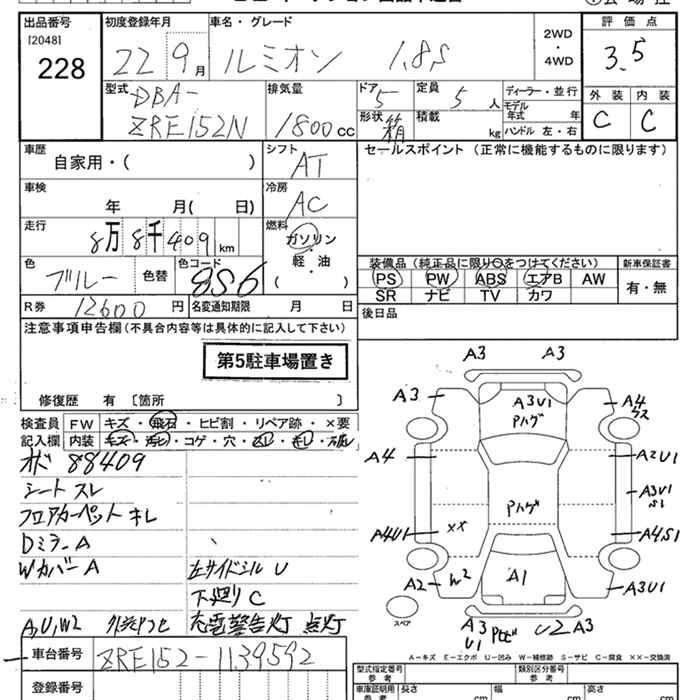 出品番号 初度登録年月 車名・グレード 評価点
[2048] 22 9月 ルミオン 1.8S 2WD・4WD 3.5
228
型式 DBA-ZRE152N 排気量 1800cc ドア 5 定員 5人 ディーラー・並行
形状 箱 積載 kg モデル年式 年 外装 内装
ハンドル 左・右 C C
車歴 自家用・( ) シフト AT セールスポイント (正常に機能するものに限ります)
車検 年 月( 日) 冷房 AC
走行 8万8千409km 燃料 ガソリン・軽油・( )
色 ブルー 色替 色コード 8S6 装備品(純正品に限り○をつけてください) 新車保証書
PS PW ABS エアB AW 有・無
SR ナビ TV カワ
R券 12600円 名変通知期限 月 日 後日品
注意事項申告欄(不具合内容等は具体的に記入して下さい)
第5駐車場置き
修復歴 有 [箇所 ]
検査員 FW キズ・飛石・ヒビ割・リペア跡・×要
記入欄 内装 キズ・汚れ・コゲ・穴・スレ・キレ
88409
シート スレ
フロアカーペット キレ
Dミラー A
Wカバー A 左サイドシル U
下廻り C
A,U,W2 充電警告灯 点灯
車台番号 ZRE152-1139592
登録番号
A3 A3
A3 A3U1 A4
Pハゲ
A4 A2U1
Pハゲ A3U1
S1
A4U1 XX A4S1
A2 W2 A1 A3U1
スペア A3 U2 A3
U1
A－キズ E－エクボ U－凹み W－補修跡 S－サビ C－腐食 XX－交換済
型式指定番号 参考 類別区分番号 参考
車庫証明用 参考 長さ cm 幅 cm 高さ cm